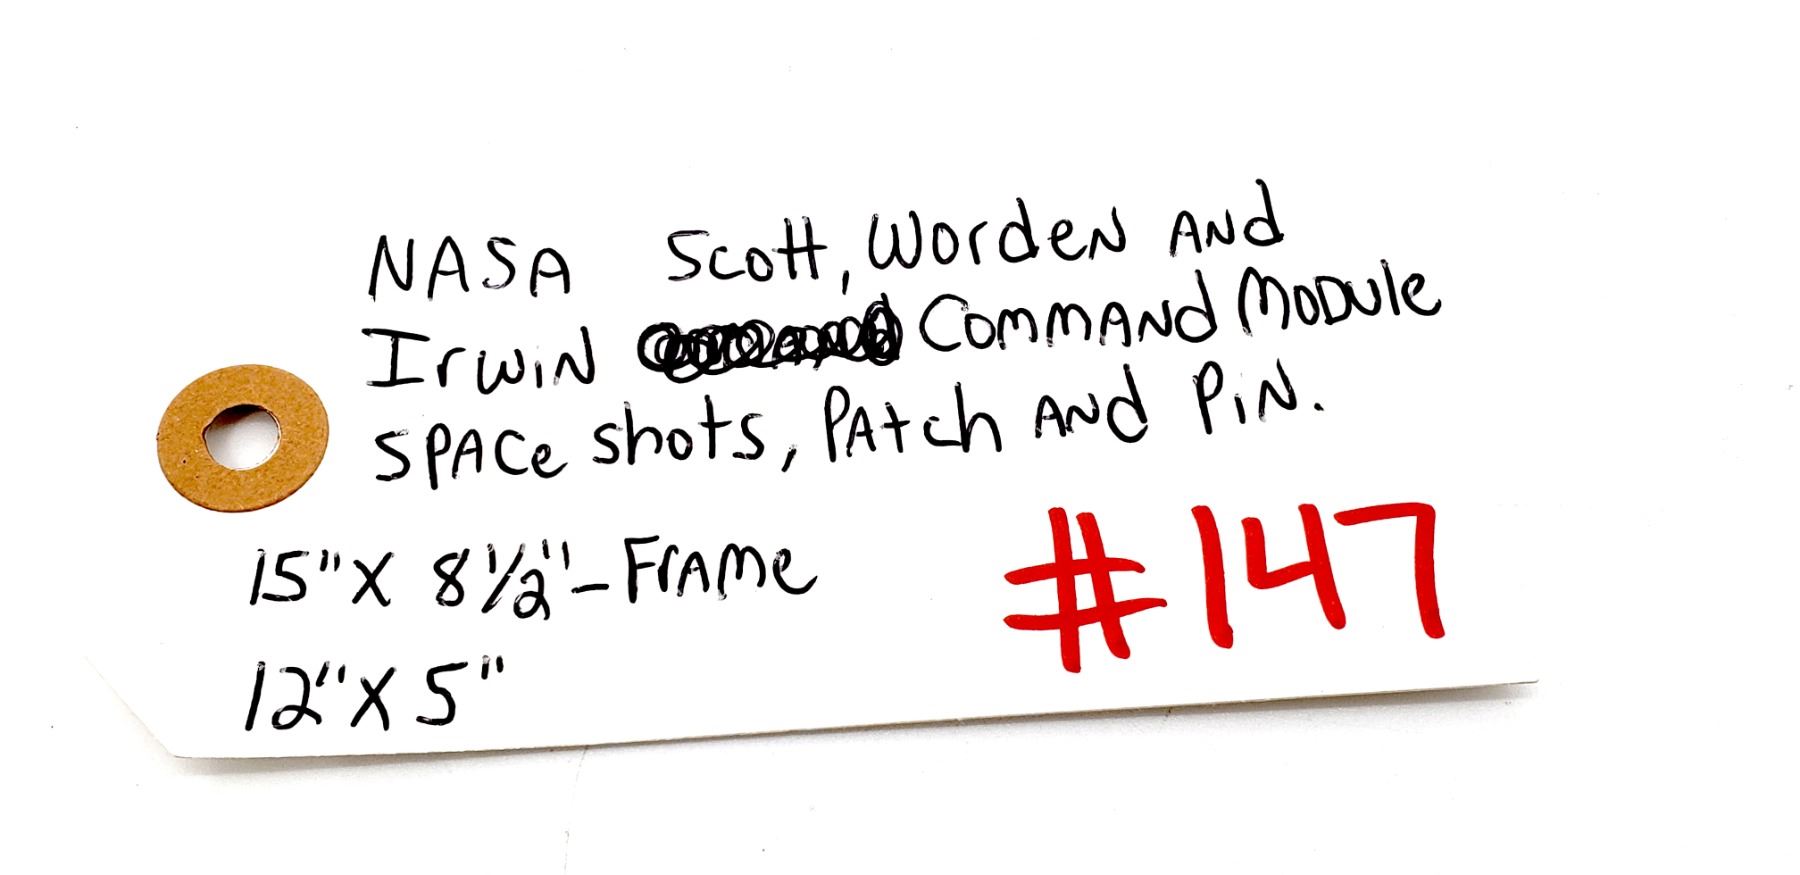 NASA Scott, Worden and
Irwin Command Module
Space shots, Patch and Pin.
15" X 8 1/2" - Frame
#147
12" X 5"